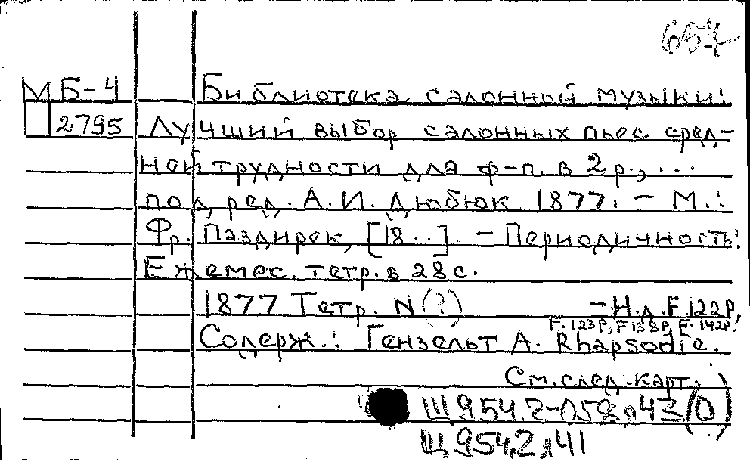 657
МБ-4 Библиотека салонной музыки:
2795 Лучший выбор салонных пьес сред-
ней трудности для ф-п. в 2 р., ...
под ред. А. И. Дюбюк. 1877. - М.:
Фр. Паздирек, [18..]. - Периодичность:
Ежемес. тетр. в 28 с.
1877 Тетр. N (?) - Н.д. F.122P,
F.123P, F.138P, F.142P.
Содерж.: Гензельт А. Rhapsodie.
См. след. карт.
Щ954.2-052я43(0)
Щ954.2я41